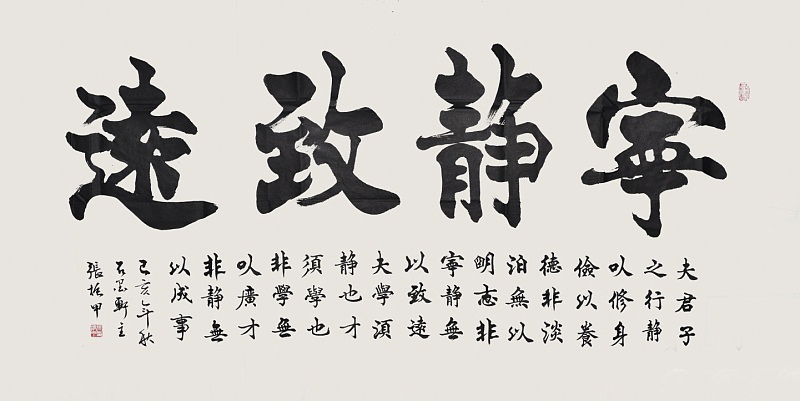 寧静致遠
夫君子
之行静
以修身
儉以養
德非淡
泊無以
明志非
寧静無
以致遠
夫學須
静也才
須學也
非學無
以廣才
非静無
以成事
己亥年秋
石墨軒主
張振甲